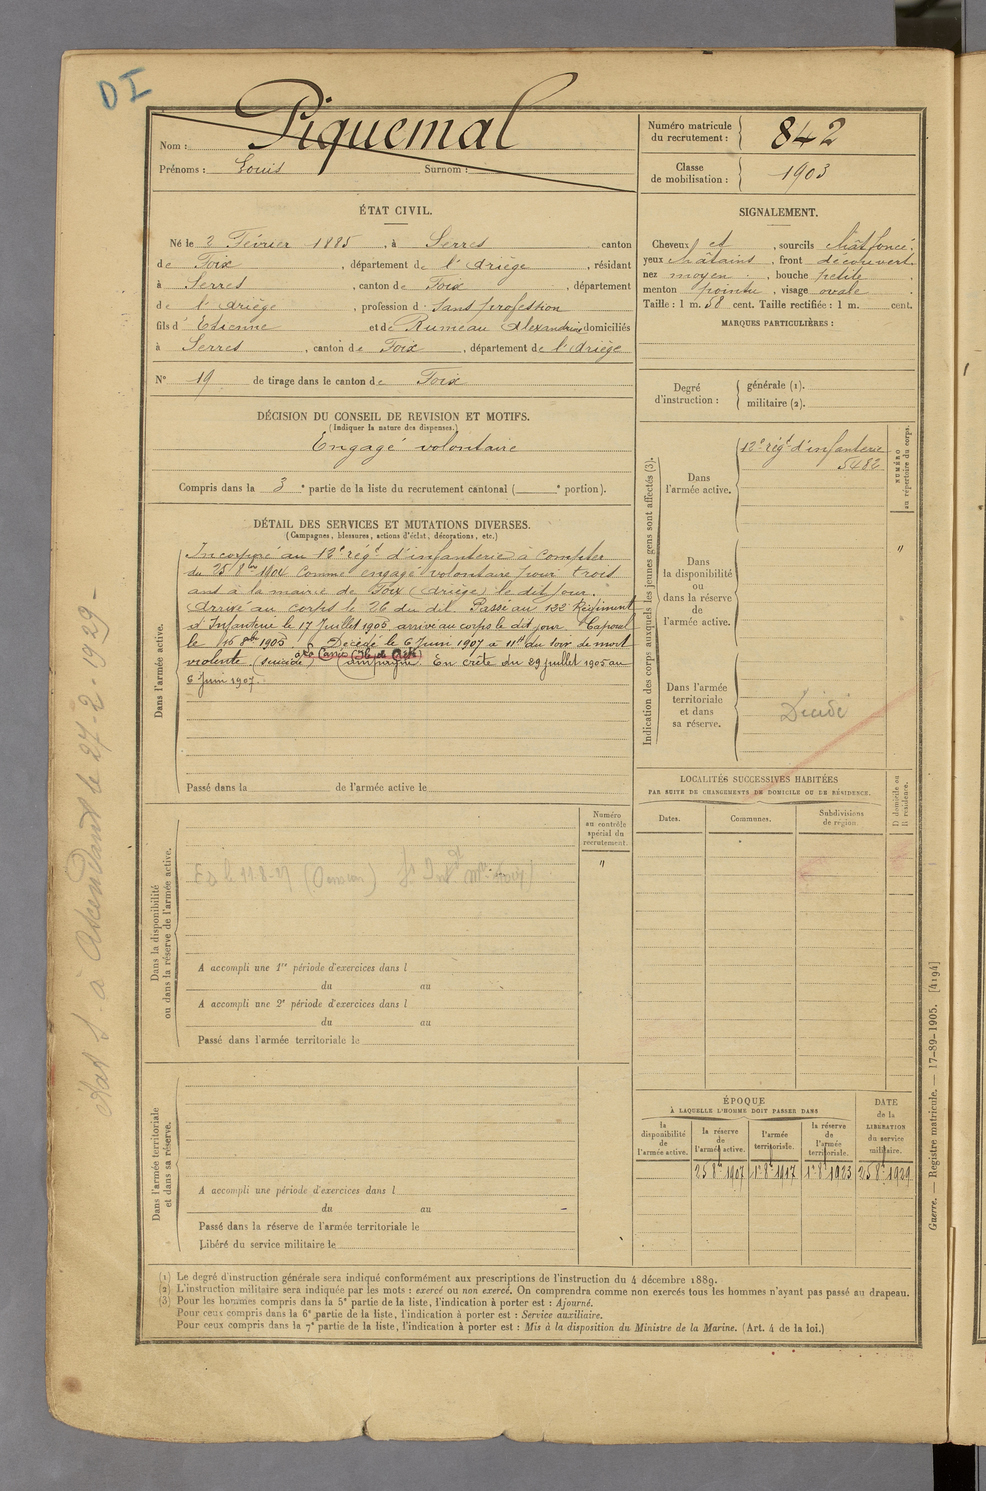 DI
Nom : Piquemal
Prénoms : Louis Surnom :
Numéro matricule
du recrutement : 842
Classe
de mobilisation : 1903
ÉTAT CIVIL.
Né le 2 Février 1885, à Serres canton
de Foix, département de l'Ariège, résidant
à Serres, canton de Foix, département
de l'Ariège, profession d sans profession
fils d' Etienne et de Rumeau Alexandrine domiciliés
à Serres, canton de Foix, département de l'Ariège
N° 19 de tirage dans le canton de Foix
SIGNALEMENT.
Cheveux et, sourcils chât foncé.
yeux châtains, front découvert
nez moyen, bouche petite
menton pointu, visage ovale
Taille : 1 m. 58 cent. Taille rectifiée : 1 m. cent.
MARQUES PARTICULIÈRES :
Degré
d'instruction :
générale (1).
militaire (2).
DÉCISION DU CONSEIL DE REVISION ET MOTIFS.
(Indiquer la nature des dispenses.)
Engagé volontaire
Compris dans la 3e partie de la liste du recrutement cantonal (e portion).
DÉTAIL DES SERVICES ET MUTATIONS DIVERSES.
(Campagnes, blessures, actions d'éclat, décorations, etc.)
Dans l'armée active.
Incorporé au 12e régt d'infanterie à compter
du 25 8bre 1904 comme engagé volontaire pour trois
ans à la mairie de Foix (Ariège) le dit jour.
Arrivé au corps le 26 du dit. Passé au 122 Régiment
d'Infanterie le 17 Juillet 1905 arrivé au corps le dit jour. Caporal
le 16 8bre 1905. Décédé le 6 Juin 1907 à 11h du soir de mort
violente (suicide) à La Canée (Ile de Crète)
Campagne. En crète du 29 juillet 1905 au
6 Juin 1907.
Passé dans la de l'armée active le
Indication des corps auxquels les jeunes gens sont affectés (3).
NUMÉRO
au répertoire du corps.
Dans
l'armée active.
12e régt d'infanterie
5482
Dans
la disponibilité
ou
dans la réserve
de
l'armée active.
"
Dans l'armée
territoriale
et dans
sa réserve.
Décédé
LOCALITÉS SUCCESSIVES HABITÉES
PAR SUITE DE CHANGEMENTS DE DOMICILE OU DE RÉSIDENCE.
Dates.
Communes.
Subdivisions
de région.
D domicile ou
R résidence.
Dans la disponibilité
ou dans la réserve de l'armée active.
Numéro
au contrôle
spécial du
recrutement.
"
A accompli une 1re période d'exercices dans l
du au
A accompli une 2e période d'exercices dans l
du au
Passé dans l'armée territoriale le
Dans l'armée territoriale
et dans sa réserve.
A accompli une période d'exercices dans l
du au
Passé dans la réserve de l'armée territoriale le
Libéré du service militaire le
ÉPOQUE
À LAQUELLE L'HOMME DOIT PASSER DANS
la
disponibilité
de
l'armée active.
la réserve
de
l'armée active.
l'armée
territoriale.
la réserve
de
l'armée
territoriale.
DATE
de la
LIBÉRATION
du service
militaire.
25 8re 1907
1r 8re 1917
1r 8re 1923
25 8re 1929
(1) Le degré d'instruction générale sera indiqué conformément aux prescriptions de l'instruction du 4 décembre 1889.
(2) L'instruction militaire sera indiquée par les mots : exercé ou non exercé. On comprendra comme non exercés tous les hommes n'ayant pas passé au drapeau.
(3) Pour les hommes compris dans la 5e partie de la liste, l'indication à porter est : Ajourné.
Pour ceux compris dans la 6e partie de la liste, l'indication à porter est : Service auxiliaire.
Pour ceux compris dans la 7e partie de la liste, l'indication à porter est : Mis à la disposition du Ministre de la Marine. (Art. 4 de la loi.)
Guerre. — Registre matricule. — 17-89-1905. [4194]
à Ascendant le 27-2-1929-